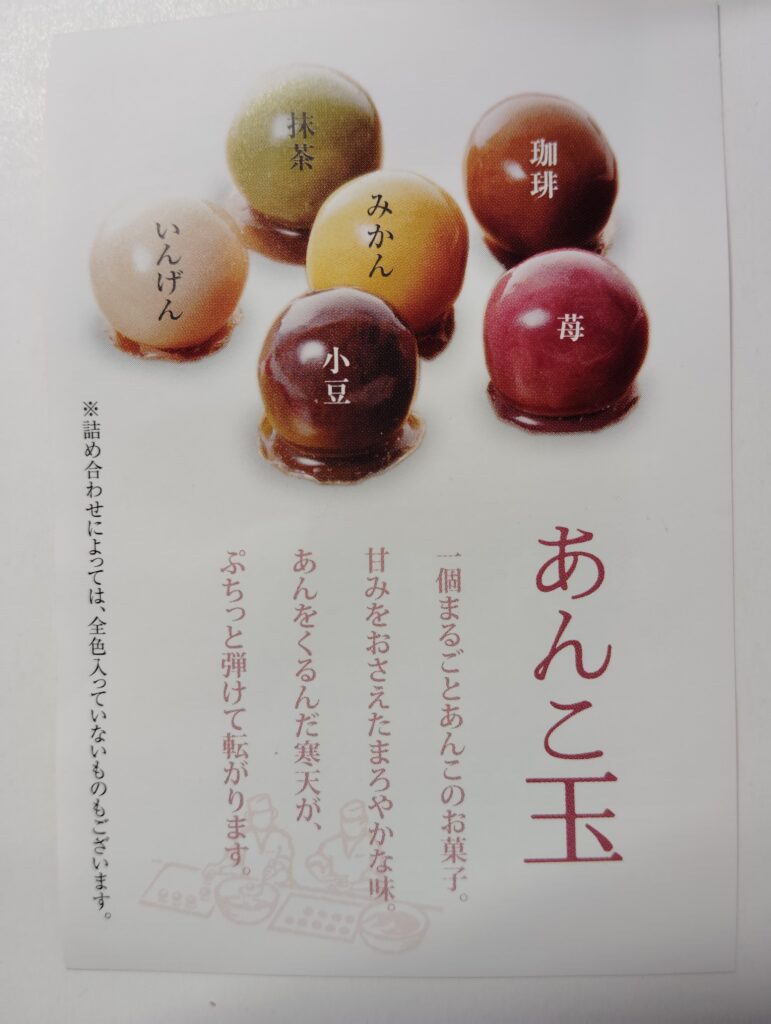 抹茶
珈琲
みかん
いんげん
苺
小豆
あんこ玉
一個まるごとあんこのお菓子。
甘みをおさえたまろやかな味。
あんをくるんだ寒天が、
ぷちっと弾けて転がります。
※詰め合わせによっては、全色入っていないものもございます。